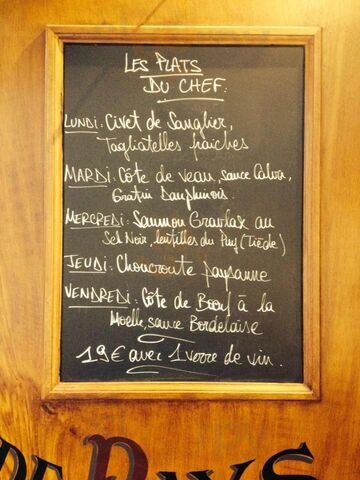 LES PLATS
DU CHEF:
LUNDI: Civet de Sanglier,
Tagliatelles fraîches
MARDI: Côte de veau, sauce Calva,
Gratin Dauphinois.
MERCREDI: Saumon Gravlax au
Sel Noir, lentilles du Puy (Tiède)
JEUDI: Choucroute paysanne
VENDREDI: Côte de Boeuf à la
Moelle, sauce Bordelaise
19€ avec 1 verre de vin.